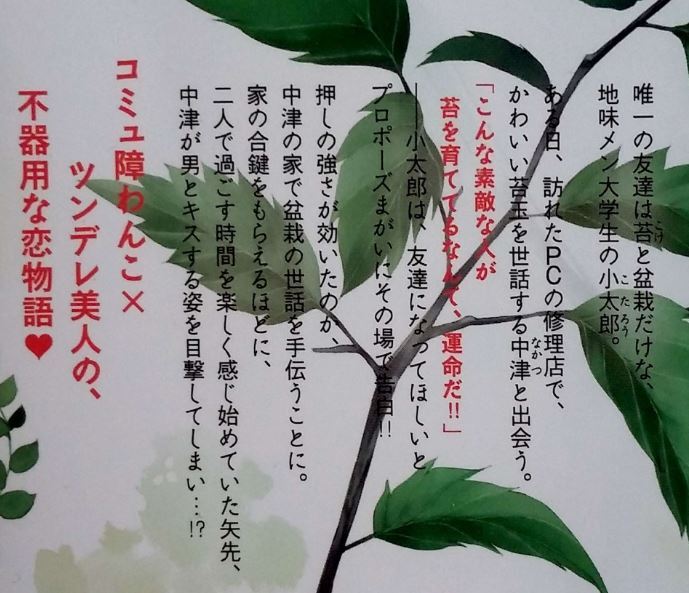 唯一の友達は苔と盆栽だけな、
地味メン大学生の小太郎。
ある日、訪れたPCの修理店で、
かわいい苔玉を世話する中津と出会う。
「こんな素敵な人が
苔を育ててるなんて、運命だ!!」
――小太郎は、友達になってほしいと
プロポーズまがいにその場で告白!!
押しの強さが効いたのか、
中津の家で盆栽の世話を手伝うことに。
家の合鍵をもらえるほどに、
二人で過ごす時間を楽しく感じ始めていた矢先、
中津が男とキスする姿を目撃してしまい…!?
コミュ障わんこ×
ツンデレ美人の、
不器用な恋物語♥